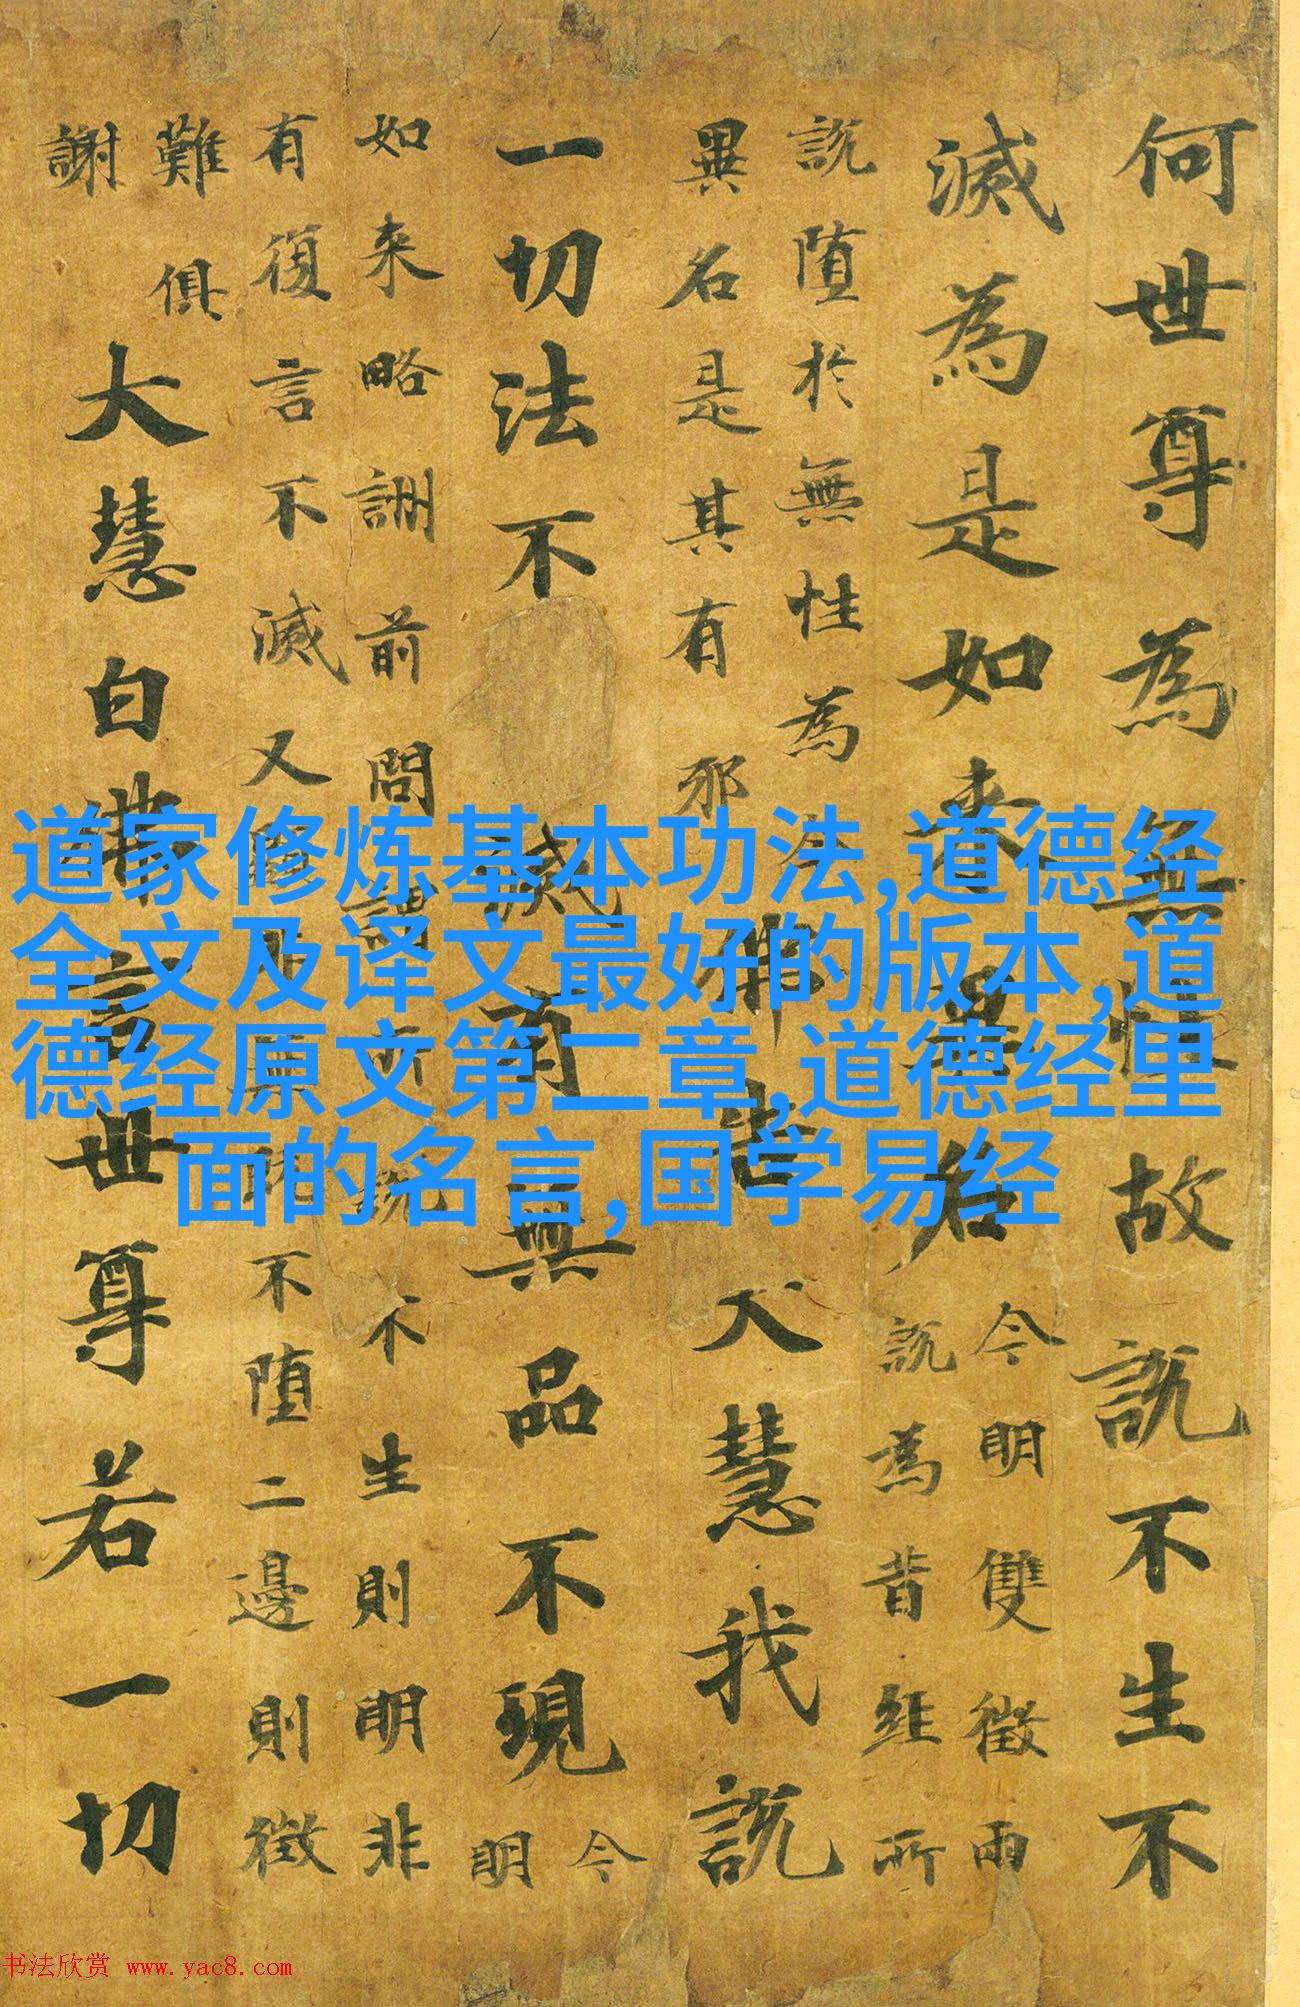 何世尊為無性故說不生不
滅為是如來異名今明雙徵兩
說為昔經所
說墮於無性為今
佛告大慧我說
異名是其有邪
一切法不
滅有無品不現今
明
如來略詶前問謂所說不生則明非
有復言不滅又
不墮二邊則徵
難俱
謝
大慧白佛言世尊若一切
道家修炼基本功法,道德经
全文及译文最好的版本,道
德经原文第二章,道德经里
面的名言,国学易经
书法欣赏 www.yac8.com